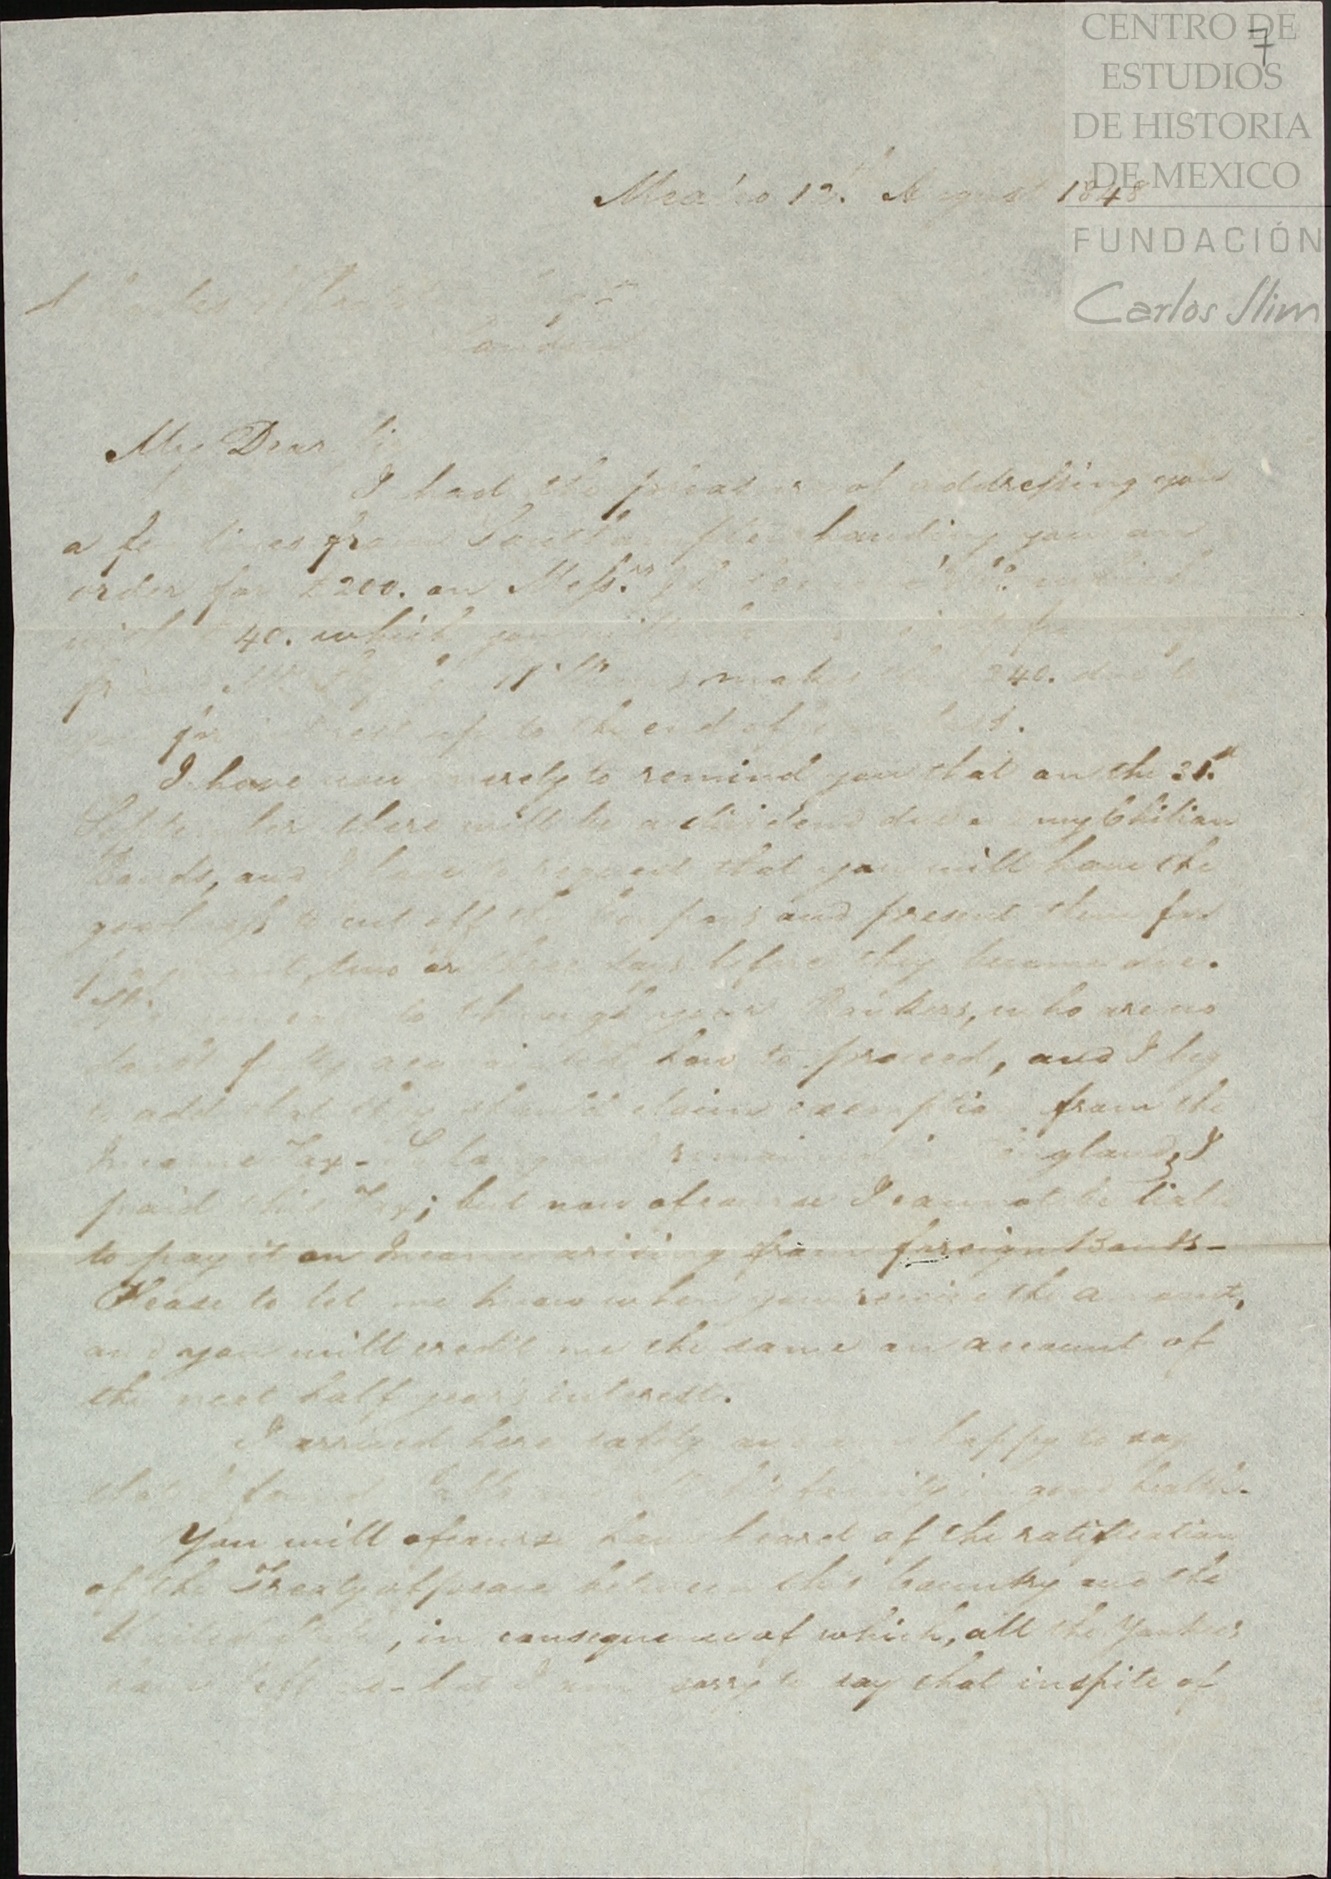 7
CENTRO DE
ESTUDIOS
DE HISTORIA
DE MEXICO
FUNDACIÓN
Carlos Slim
Mexico 12th August 1848
London
My Dear Sir
I had the pleasure of addressing you
a few lines from Southampton handing you an
order for £200. on Messrs
with 40. which you
makes the 240. due to
you for interest up to the end of
I have now merely to remind you that on the 31st
September there will be a dividend due on my Chilian
Bonds, and I have to request that you will have the
goodness to cut off the Coupons and present them for
payment, two or three days before they become due.
to through your Bankers, who are no
doubt fully acquainted how to proceed, and I beg
to add that they should claim exemption from the
Income Tax - So long as I remained in England, I
paid this Tax; but now of course I cannot be liable
to pay it on Income arising from foreign Bonds -
Please to let me know when you receive the amount,
and you will credit me the same on account of
the next half year's interest.
I arrived here safely and am happy to say
that I found and all his family in good health -
You will of course have heard of the ratification
of the Treaty of peace between this Country and the
United States, in consequence of which, all the Yankees
have left us - but I am sorry to say that in spite of